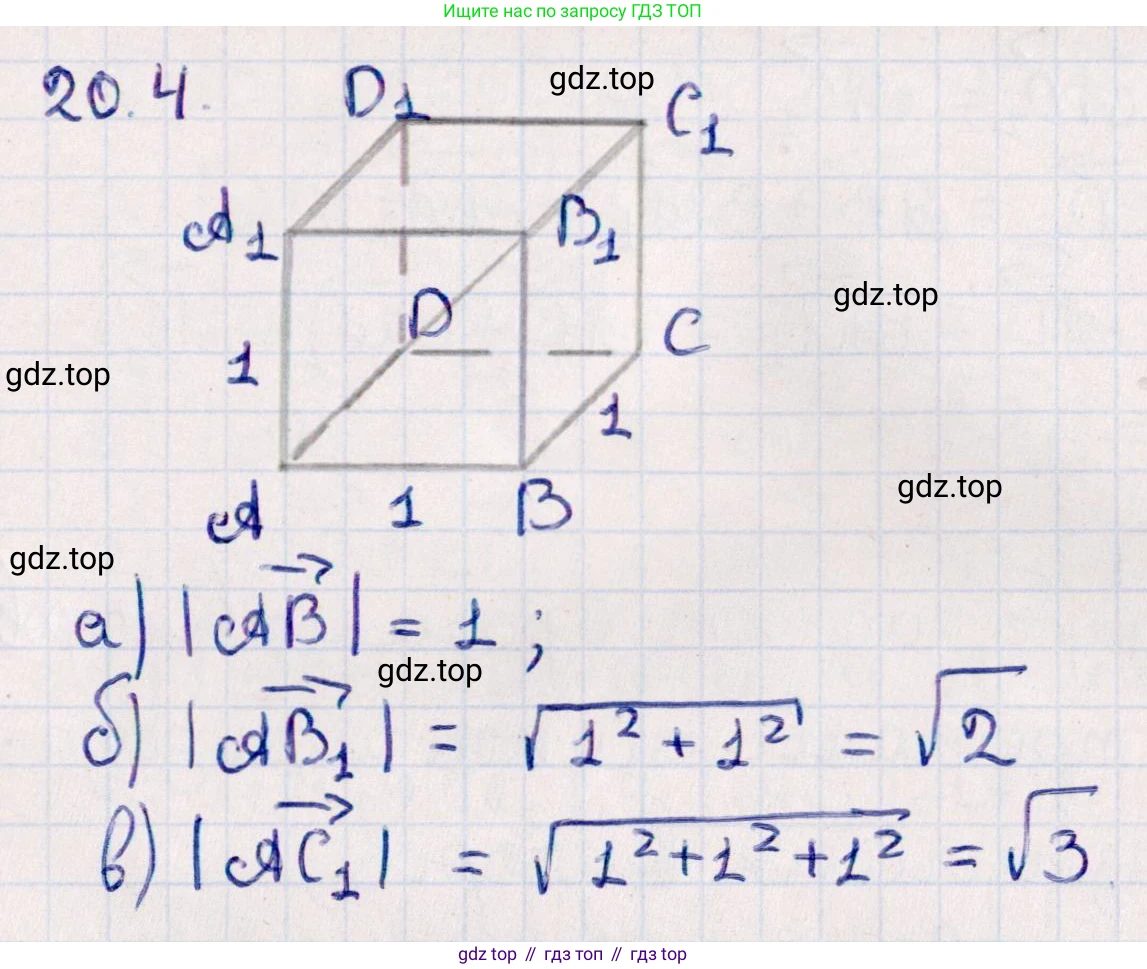 Ищите нас по запросу ГДЗ ТОП
20.4.
D1
gdz.top
C1
A1
B1
gdz.top
D
C
1
gdz.top
1
gdz.top
A
1
B
gdz.top
а) |AB→| = 1;
gdz.top
б) |AB₁→| = √(1² + 1²) = √2
в) |AC₁→| = √(1² + 1² + 1²) = √3
gdz.top // гдз топ // gdz.top